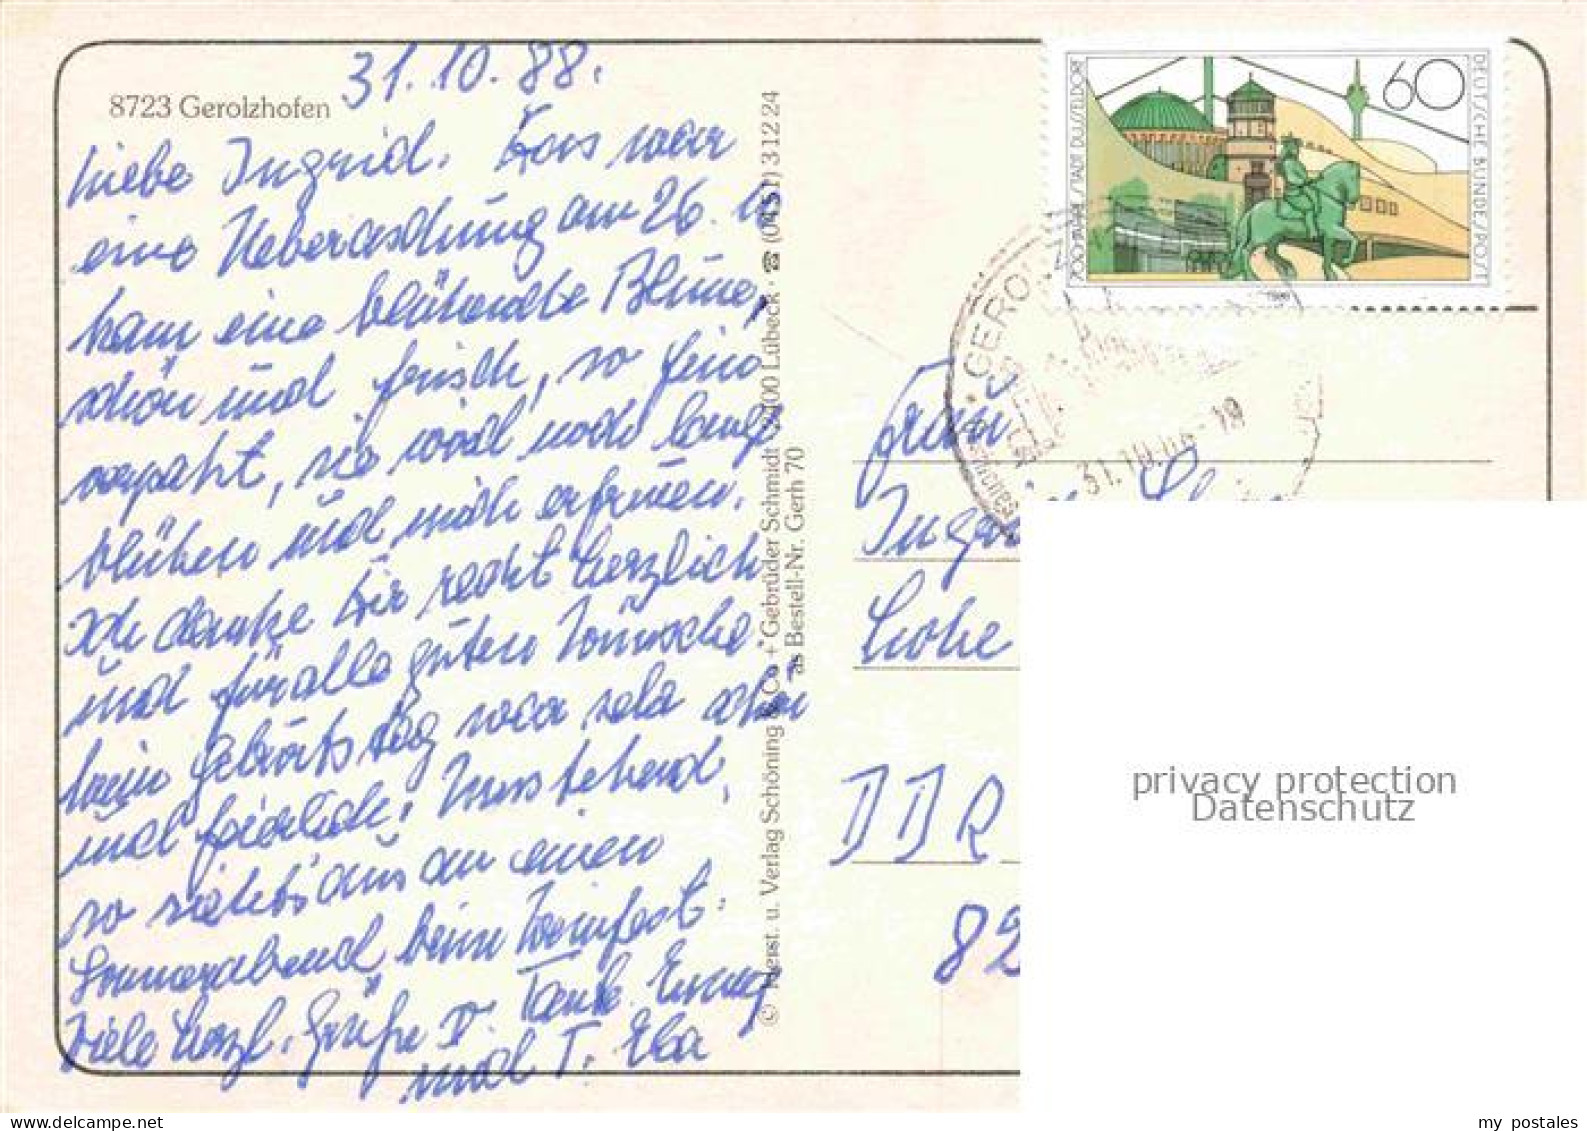 8723 Gerolzhofen
31.10.88.
Liebe Ingrid. Das war
eine Ueberaschung am 26. 10
kam eine blühende Blume,
schön und frisch, so fein
verpakt, sie wird noch lange
blühen und mich erfreuen.
Ich danke Dir recht herzlich
und für alle guten Wünsche
mein Geburtstag war sehr schön
und feierlich. Umstehend,
so sieht's aus an einem
Sommerabend beim Weinfest.
Viele herzl. Grüße V. Tante Emmy
und T. Ela
© Herst. u. Verlag Schöning & Co + Gebrüder Schmidt · 2400 Lübeck · ☎ (0451) 3 12 24
as Bestell-Nr. Gerh 70
700 JAHRE STADT DÜSSELDORF
60
DEUTSCHE BUNDESPOST
GERO
31.10.88-19
Frau
Ing
Hohe
DDR
82
privacy protection
Datenschutz
www.delcampe.net
my_postales